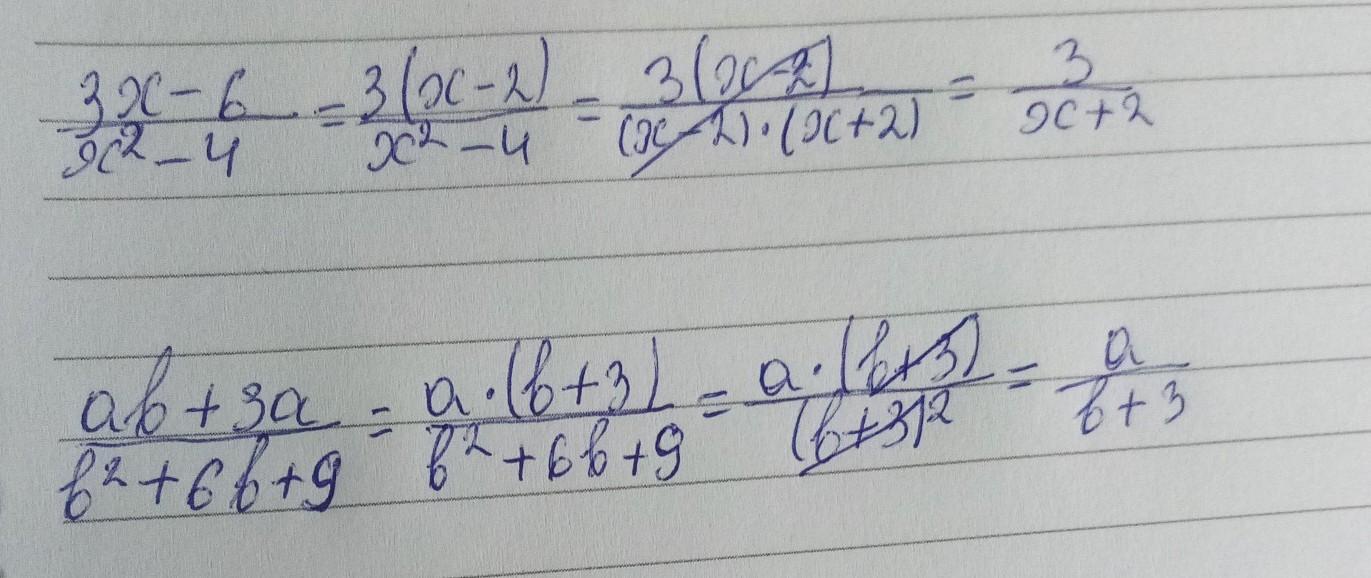 (3x-6)/(x²-4) = (3(x-2))/(x²-4) = (3(x-2))/((x-2)·(x+2)) = 3/(x+2)
(ab+3a)/(b²+6b+9) = (a·(b+3))/(b²+6b+9) = (a·(b+3))/((b+3)²) = a/(b+3)